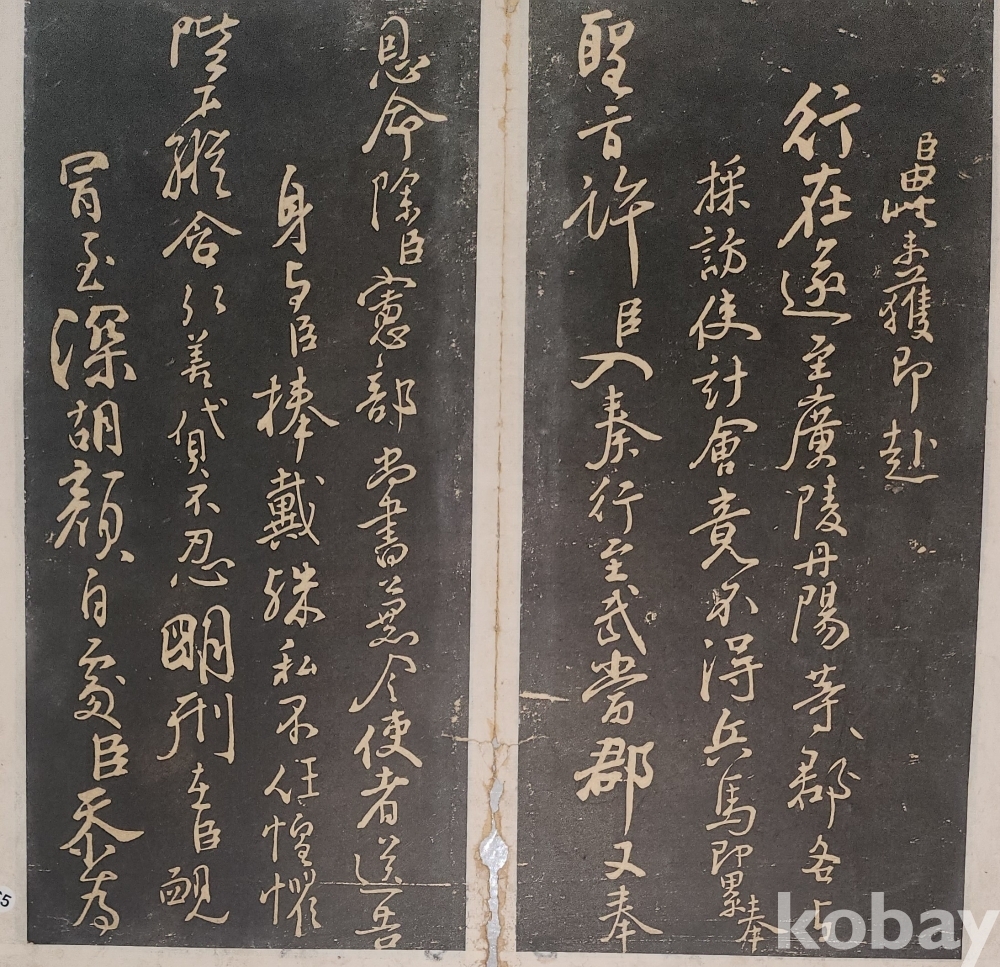 臣由此未獲即赴
行在遂至廣陵丹陽等郡各与
採訪使計會竟不得兵馬即累奉
聖旨許臣入奏行至武當郡又奉
恩命除臣憲部尚書兼令使者送告
身与臣捧戴殊私不任惶懼
陛下縱含弘善貸不忍明刑在臣靦
冒至深胡顏自處臣忝為
kobay